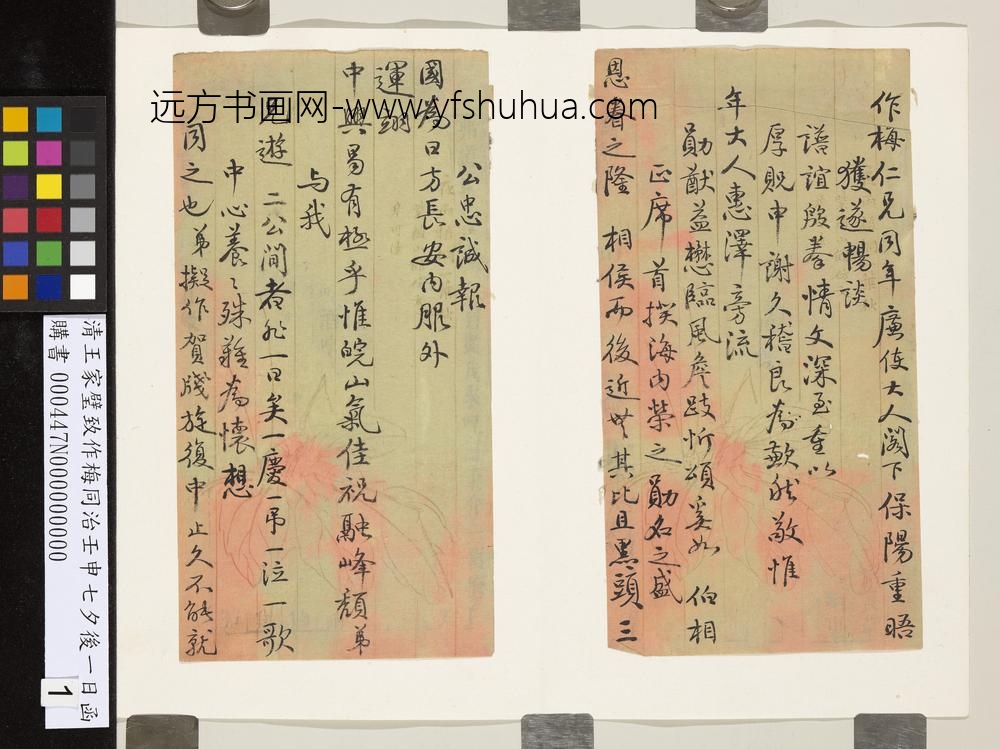 作梅仁兄同年廉使大人閣下保陽重晤
獲遂暢談
譜誼殷拳情文深至重以
厚貺申謝久稽良為歉然敬惟
年大人惠澤旁流
勛猷益懋臨風詹跂忻頌奚如 伯相
正席 首揆海內榮之勛名之盛
恩眷之隆 相侯而後近世其比且黑頭三
公忠誠報
國為日方長安內服外
運翊
中興曷有極乎惟皖山氣佳祝融峰頹弟
与我
二公
遊 二公間者非一日矣一慶一弔一泣一歌
中心養〻殊難為懷想
同之也弟擬作賀牋旋復中止久不能就
远方书画网-www.yfshuhua.com
清王家璧致作梅同治壬申七夕後一日函
購書 000447N000000000
1